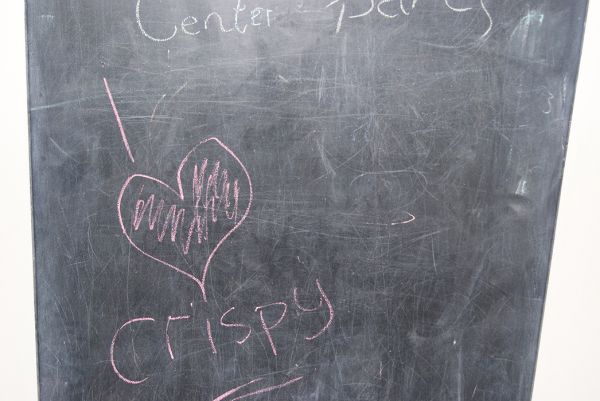 Center party
I
Crispy